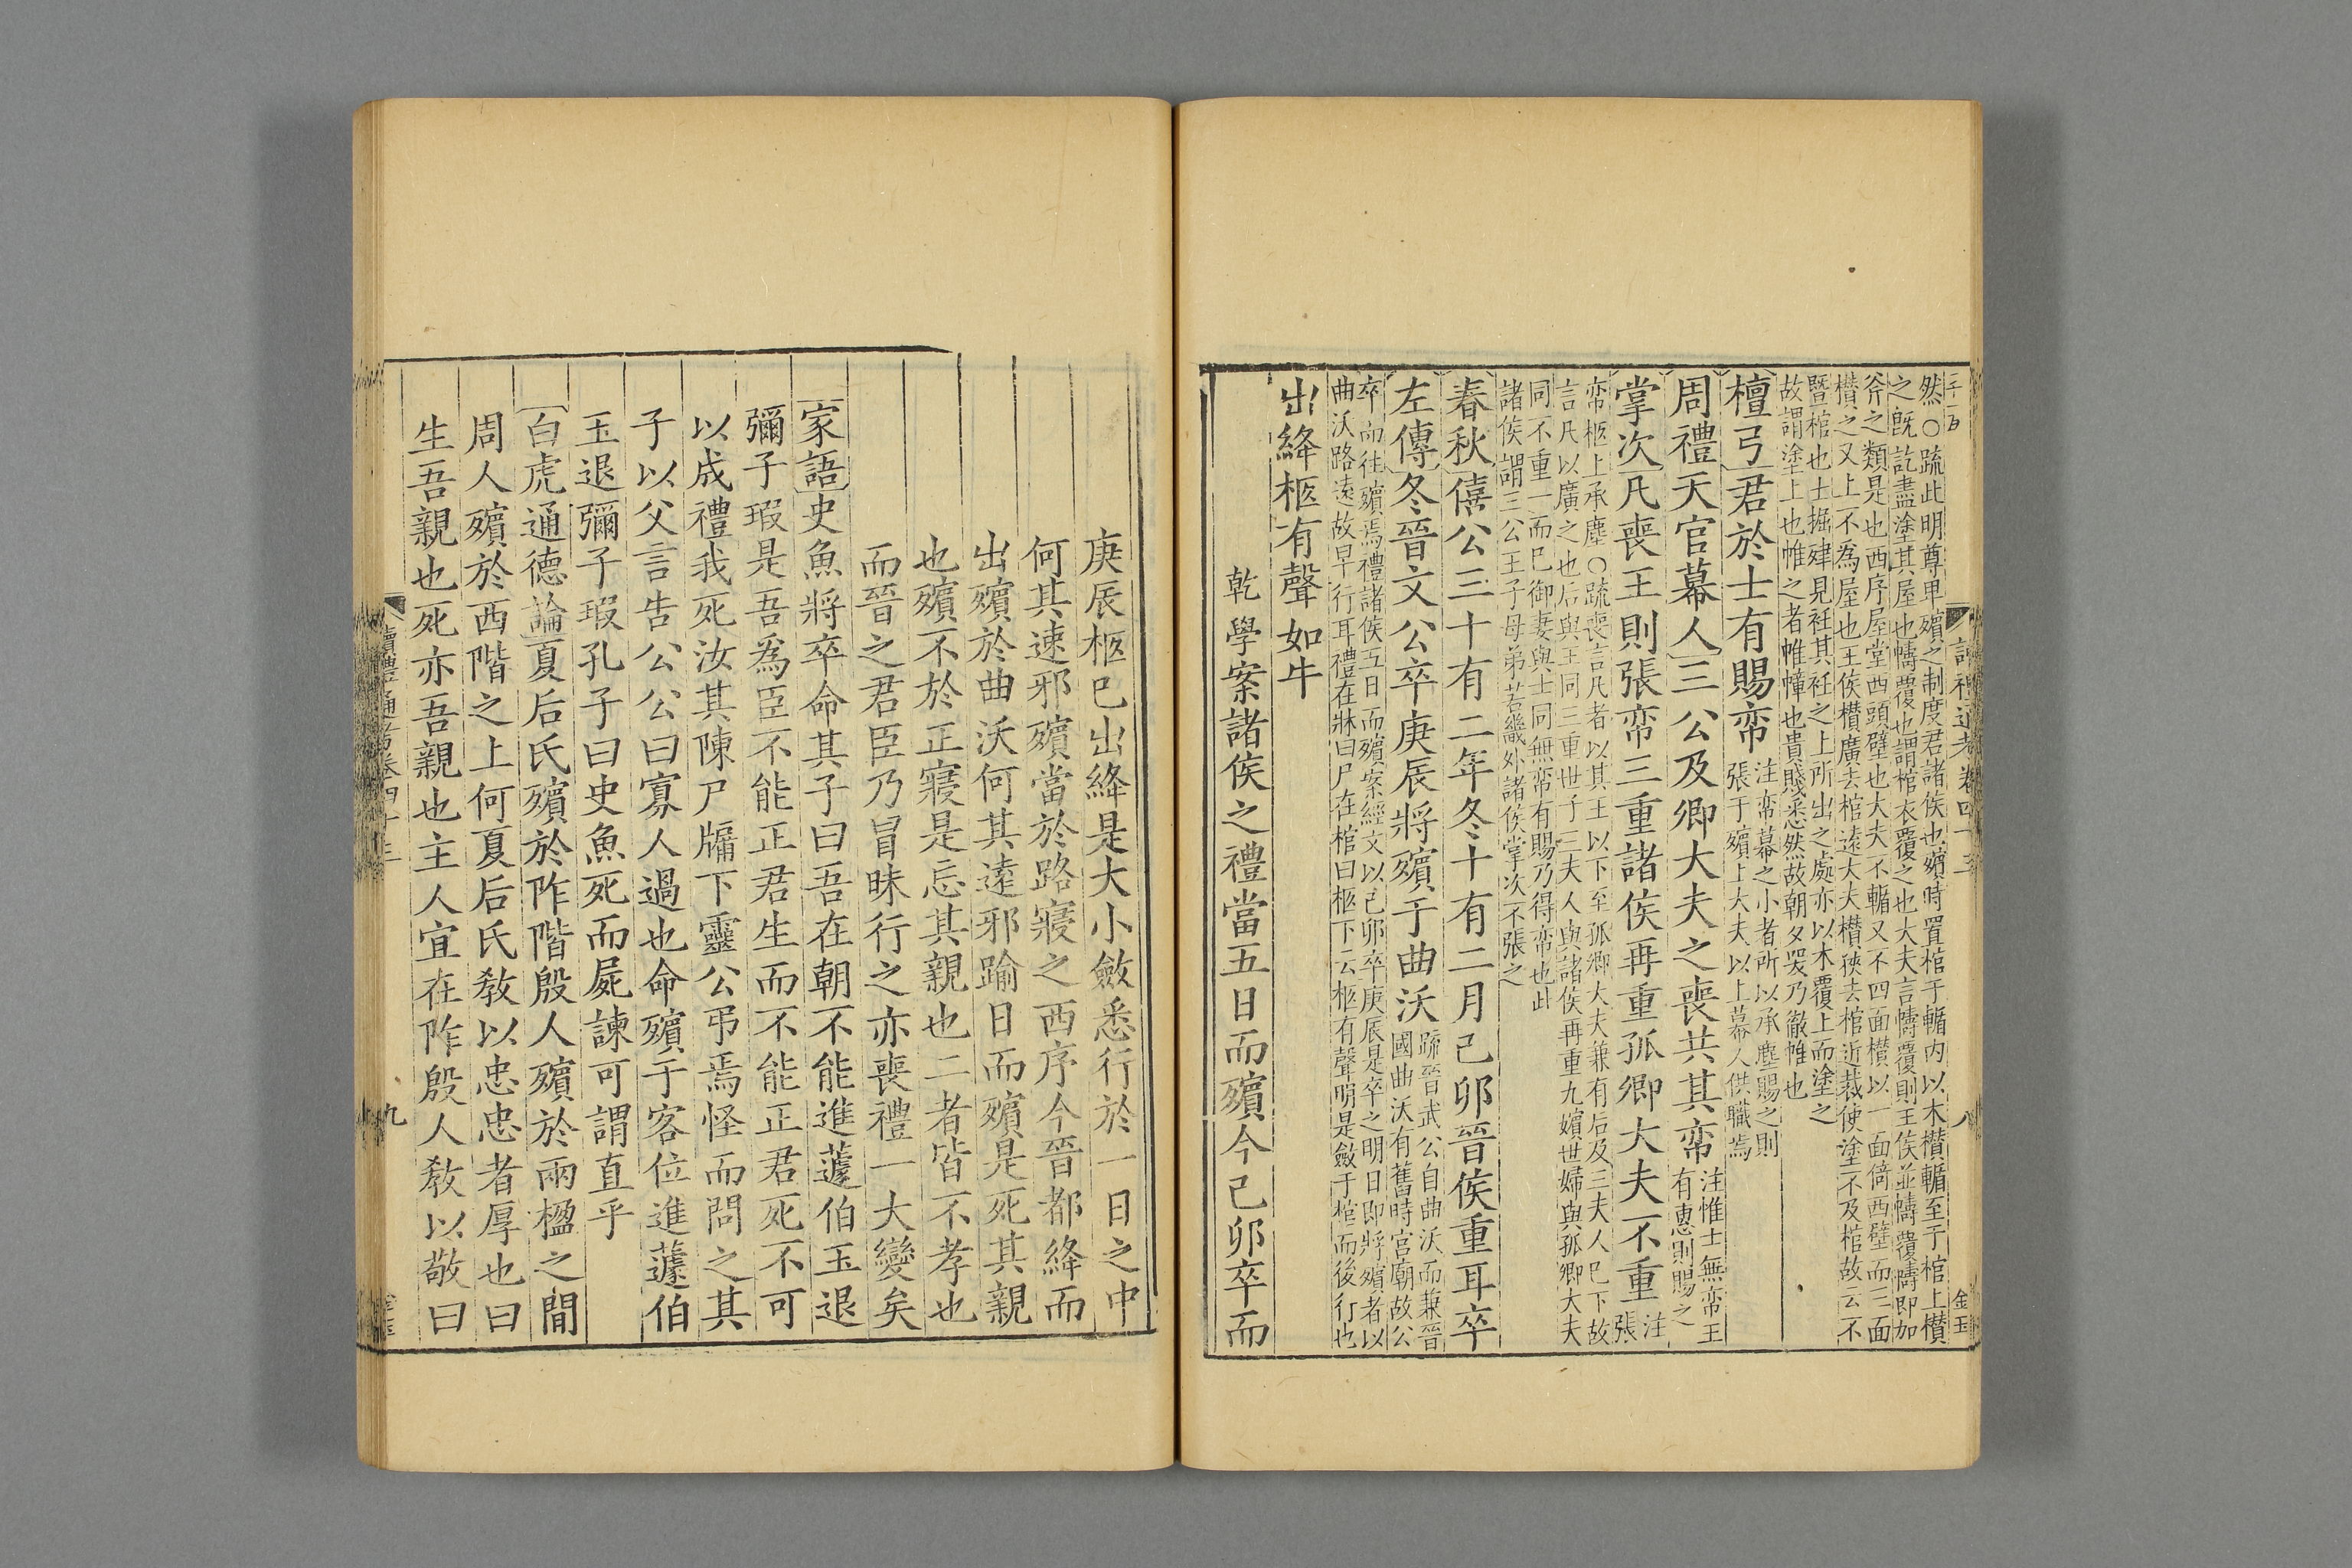 然○疏此明尊卑殯之制度君諸侯也殯時置棺于輴內以木欑輴至于棺上欑
之旣訖盡塗其屋也幬覆也謂棺衣覆之也大夫言幬覆則王侯並幬覆幬即加
斧之類是也西序屋堂西頭壁也大夫不輴又不四面欑以一面倚西壁而三面
欑之又上不為屋也王侯欑廣去棺遠大夫欑狹去棺近裁使塗不及棺故云不
曁棺也士掘肂見衽其衽之上所出之處亦以木覆上而塗之
故謂塗上也帷之者帷幛也貴賤悉然故朝夕哭乃徹帷也
檀弓君於士有賜帟注帟幕之小者所以承塵賜之則
張于殯上大夫以上幕人供職焉
周禮天官幕人三公及卿大夫之喪共其帟注惟士無帟王
有惠則賜之
掌次凡喪王則張帟三重諸侯再重孤卿大夫不重注
張
帟柩上承塵○疏喪言凡者以其王以下至孤卿大夫兼有后及三夫人已下故
言凡以廣之也后與王同三重世子三夫人與諸侯再重九嬪世婦與孤卿大夫
同不重一而已御妻與士同無帟有賜乃得帟也此
諸侯謂三公王子母弟若畿外諸侯掌次不張之
春秋僖公三十有二年冬十有二月己卯晉侯重耳卒
左傳冬晉文公卒庚辰將殯于曲沃疏晉武公自曲沃而兼晉
國曲沃有舊時宮廟故公
卒而往殯焉禮諸侯五日而殯案經文以己卯卒庚辰是卒之明日即將殯者以
曲沃路遠故早行耳禮在牀曰尸在棺曰柩下云柩有聲明是斂于棺而後行也
出絳柩有聲如牛
乾學案諸侯之禮當五日而殯今己卯卒而
庚辰柩已出絳是大小斂悉行於一日之中
何其速邪殯當於路寢之西序今晉都絳而
出殯於曲沃何其遠邪踰日而殯是死其親
也殯不於正寢是忘其親也二者皆不孝也
而晉之君臣乃冒昧行之亦喪禮一大變矣
家語史魚將卒命其子曰吾在朝不能進蘧伯玉退
彌子瑕是吾為臣不能正君生而不能正君死不可
以成禮我死汝其陳尸牖下靈公弔焉怪而問之其
子以父言告公公曰寡人過也命殯于客位進蘧伯
玉退彌子瑕孔子曰史魚死而屍諫可謂直乎
白虎通德論夏后氏殯於阼階殷人殯於兩楹之間
周人殯於西階之上何夏后氏敎以忠忠者厚也曰
生吾親也死亦吾親也主人宜在阼殷人敎以敬曰
九